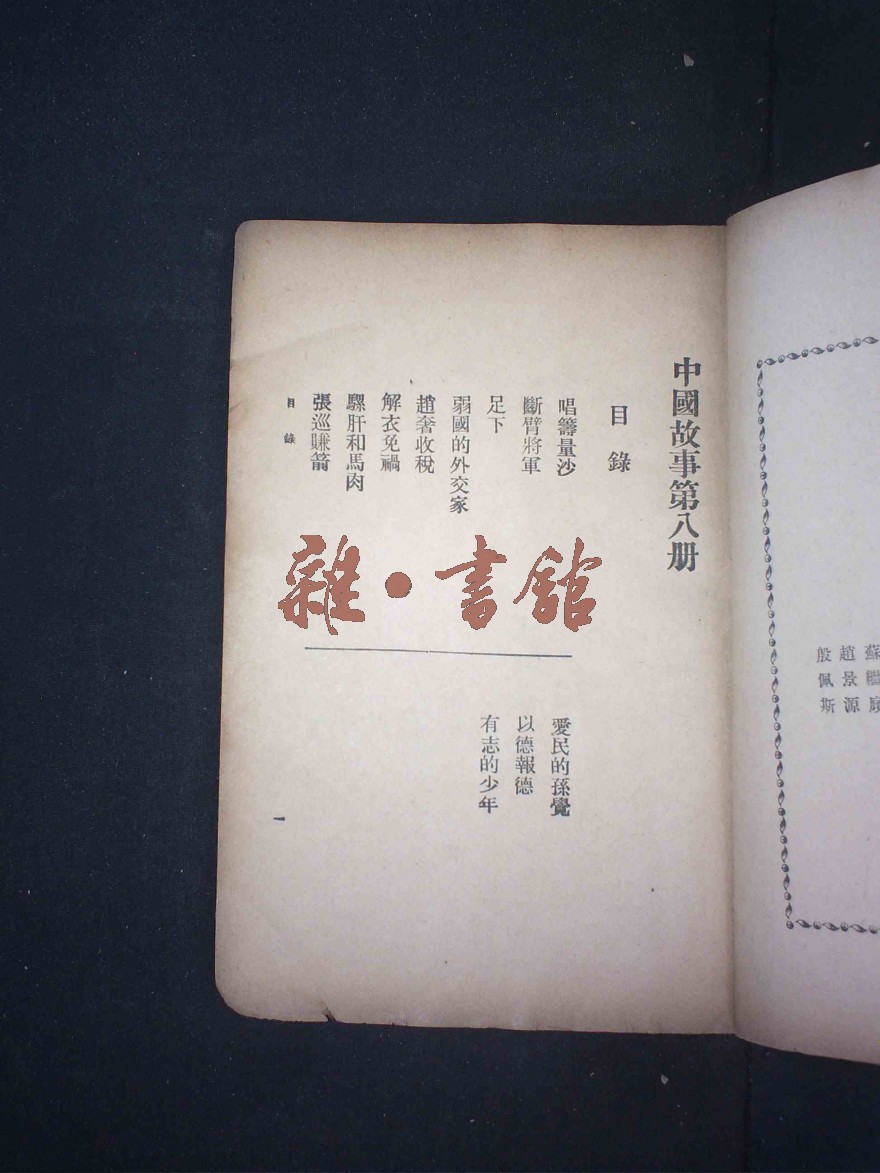 蘇繼廎
趙景源
殷佩斯
中國故事第八册
目錄
唱籌量沙
斷臂將軍
足下
弱國的外交家
趙奢收稅
解衣免禍
騾肝和馬肉
張巡賺箭
愛民的孫覺
以德報德
有志的少年
目錄
一
雜·書館